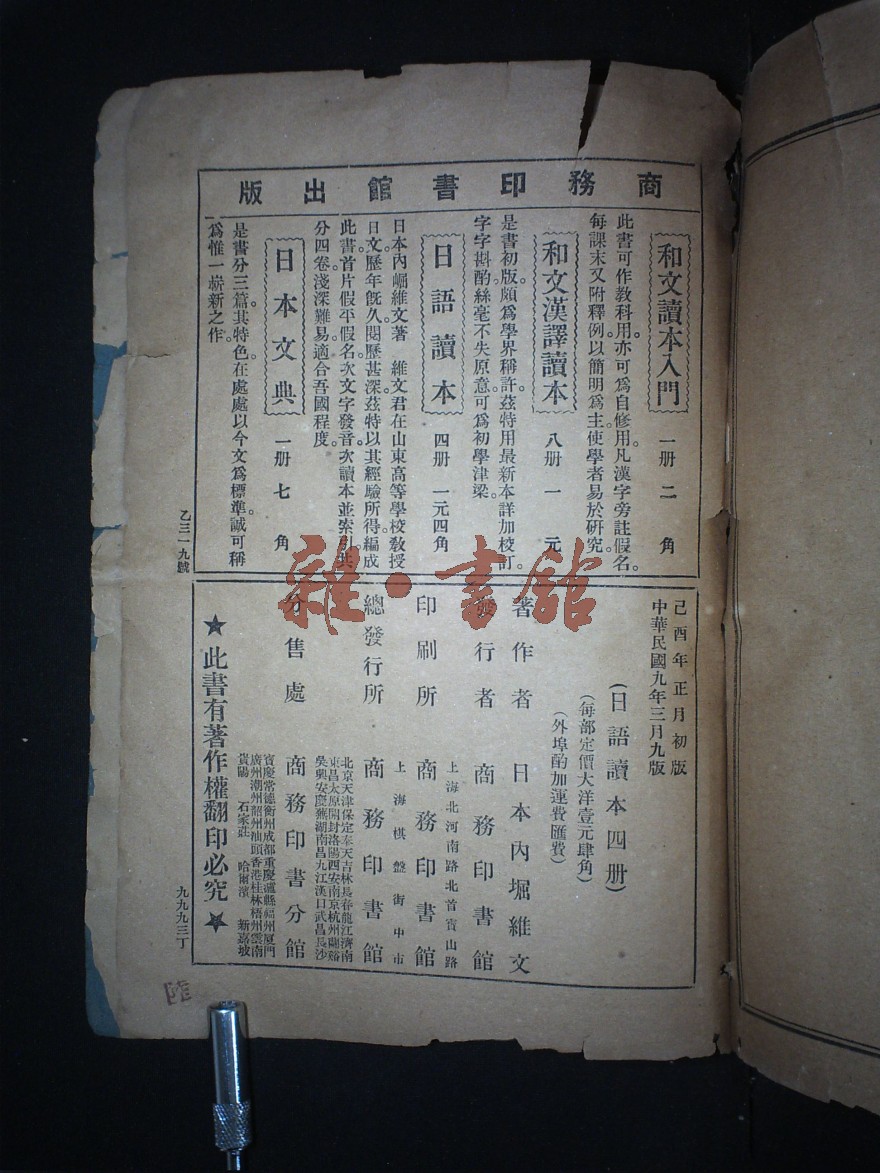 商務印書館出版
和文讀本入門 一册二角
此書可作教科用亦可爲自修用凡漢字旁註假名。
每課末又附釋例。以簡明爲主。使學者易於硏究。
和文漢譯讀本 八册一元
是書初版。頗爲學界稱許。茲特用最新本詳加校訂。
字字斟酌。絲毫不失原意。可爲初學津梁。
日語讀本 四册一元四角
日本內崛維文著 維文君在山東高等學校敎授
日文。歷年旣久。閱歷甚深。茲特以其經驗所得。編成
此書。首片假平假名。次文字發音。次讀本並索引。共
分四卷。淺深難易。適合吾國程度。
日本文典 一册七角
是書分三篇。其特色。在處處以今文爲標準。誠可稱
爲惟一嶄新之作。
乙三一九號
己酉年正月初版
中華民國九年三月九版
(日語讀本四册)
(每部定價大洋壹元肆角)
(外埠酌加運費匯費)
著作者 日本內堀維文
發行者 商務印書館
上海北河南路北首寶山路
印刷所 商務印書館
上海棋盤街中市
總發行所 商務印書館
北京天津保定奉天吉林長春龍江濟南
東昌太原開封洛陽西安南京杭州蘭谿
吳興安慶蕪湖南昌九江漢口武昌長沙
分售處 商務印書分館
寶慶常德衡州成都重慶瀘縣福州厦門
廣州潮州韶州汕頭香港桂林梧州雲南
貴陽 石家莊 哈爾濱 新嘉坡
★此書有著作權翻印必究★
九九九三丁
雜·書館